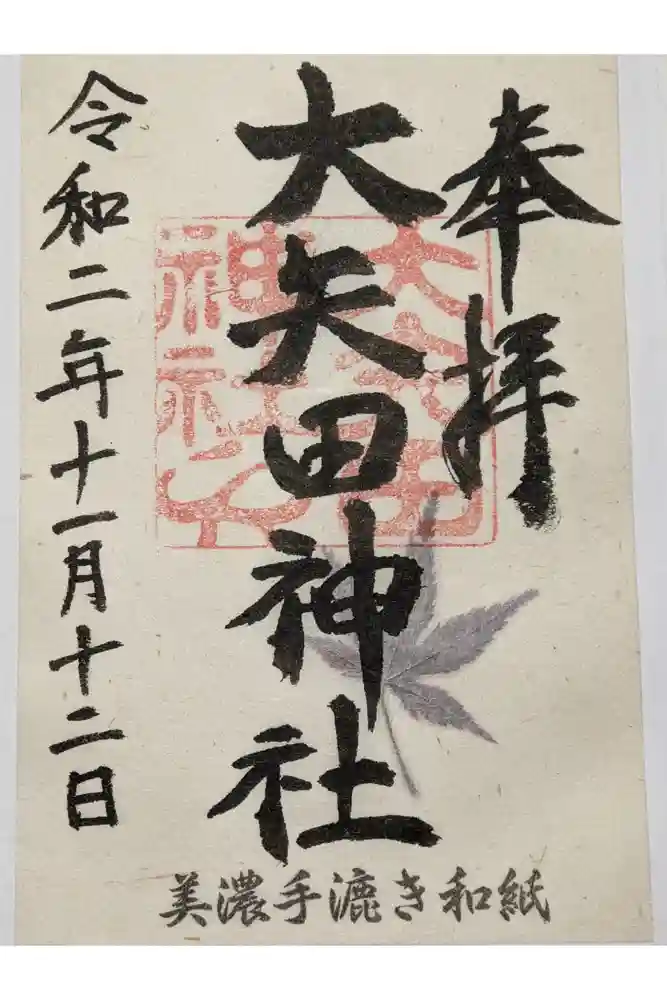 奉拝
大矢田神社
令和二年十一月十二日
美濃手漉き和紙